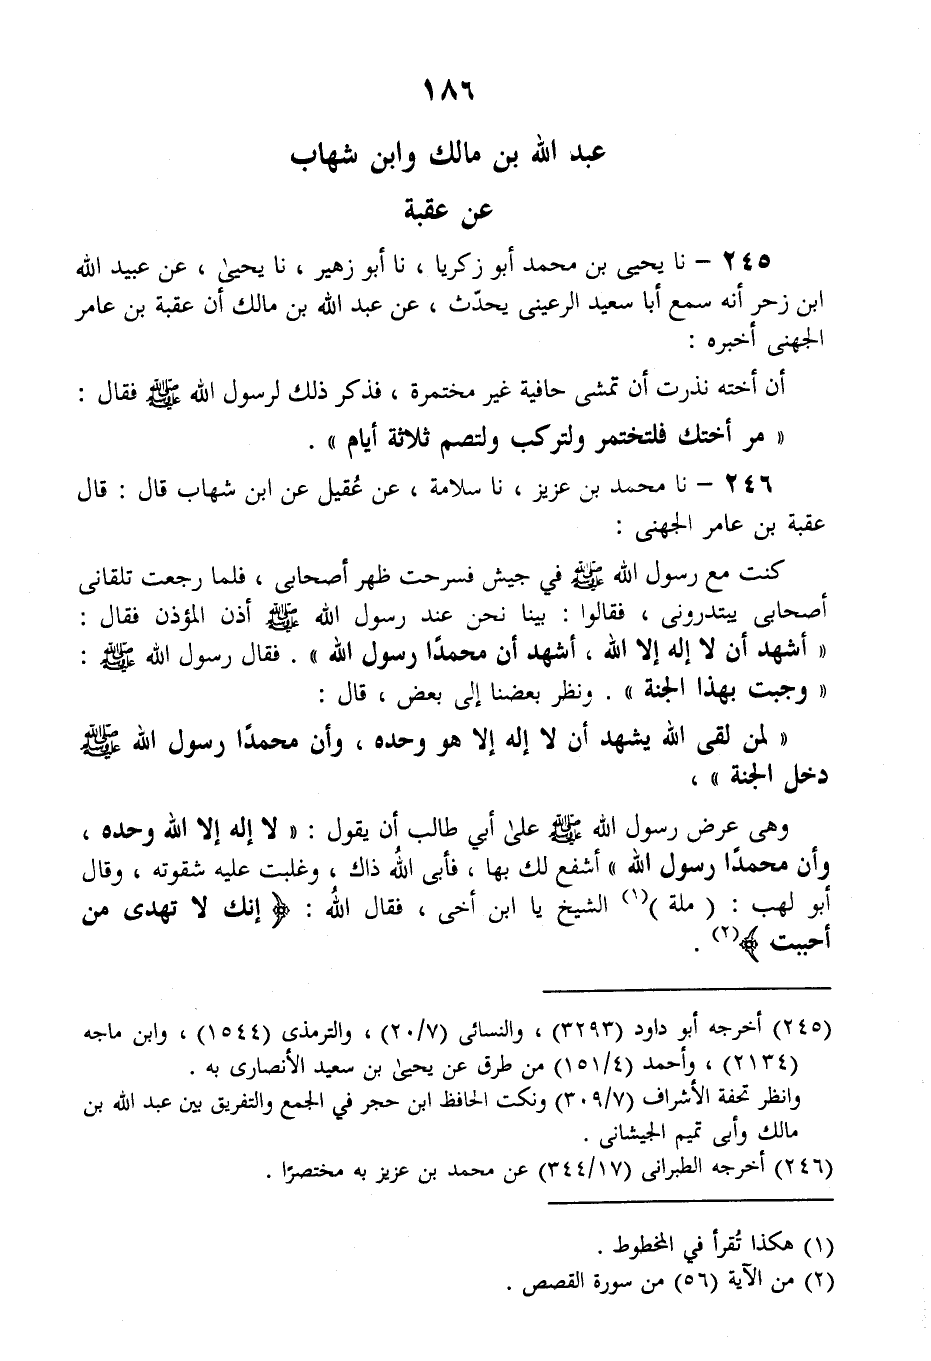 ١٨٦
عبد الله بن مالك وابن شهاب
عن عقبة
٢٤٥ – نا يحيى بن محمد أبو زكريا ، نا أبو زهير ، نا يحيىٰ ، عن عبيد الله
ابن زحر أنه سمع أبا سعيد الرعينى يحدّث ، عن عبد الله بن مالك أن عقبة بن عامر
الجهنى أخبره :
أن أخته نذرت أن تمشى حافية غير مختمرة ، فذكر ذلك لرسول الله ﷺ فقال :
« مر أختك فلتختمر ولتركب ولتصم ثلاثة أيام » .
٢٤٦ – نا محمد بن عزيز ، نا سلامة ، عن عُقيل عن ابن شهاب قال : قال
عقبة بن عامر الجهنى :
كنت مع رسول الله ﷺ في جيش فسرحت ظهر أصحابى ، فلما رجعت تلقانى
أصحابى يبتدرونى ، فقالوا : بينا نحن عند رسول الله ﷺ أذن المؤذن فقال :
« أشهد أن لا إله إلا الله ، أشهد أن محمدًا رسول الله » . فقال رسول الله ﷺ :
« وجبت بهذا الجنة » . ونظر بعضنا إلى بعض ، قال :
« لمن لقى الله يشهد أن لا إله إلا هو وحده ، وأن محمدًا رسول الله ﷺ
دخل الجنة » ،
وهى عرض رسول الله ﷺ علىٰ أبي طالب أن يقول : « لا إله إلا الله وحده ،
وأن محمدًا رسول الله » أشفع لك بها ، فأبى اللهُ ذاك ، وغلبت عليه شقوته ، وقال
أبو لهب : ( ملة )(١) الشيخ يا ابن أخى ، فقال اللهُ : ﴿ إنك لا تهدى من
أحببت ﴾(٢) .
(٢٤٥) أخرجه أبو داود (٣٢٩٣) ، والنسائى (٢٠/٧) ، والترمذى (١٥٤٤) ، وابن ماجه
(٢١٣٤) ، وأحمد (١٥١/٤) من طرق عن يحيىٰ بن سعيد الأنصارى به .
وانظر تحفة الأشراف (٣٠٩/٧) ونكت الحافظ ابن حجر في الجمع والتفريق بين عبد الله بن
مالك وأبى تميم الجيشانى .
(٢٤٦) أخرجه الطبرانى (٣٤٤/١٧) عن محمد بن عزيز به مختصرًا .
(١) هكذا تُقرأ في المخطوط .
(٢) من الآية (٥٦) من سورة القصص .